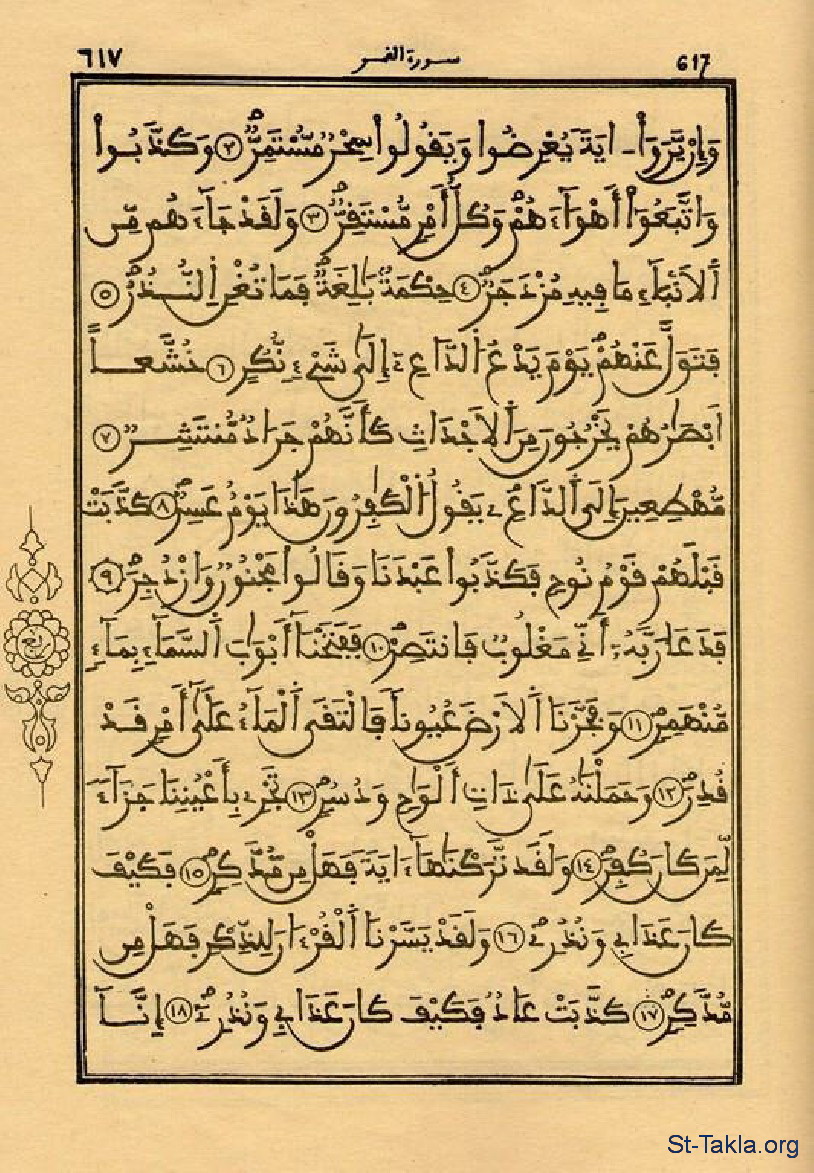 ٦١٧ سورة القمر 617
وَإِنْ يَّرَوَاْ ـ ايَةً يُعْرِضُوا وَيَقُولُوا سِحْرٌ مُّسْتَمِرٌّ ٢ وَكَذَّبُوا
وَاتَّبَعُوٓا أَهْوَآءَهُمْ وَكُلُّ أَمْرٍ مُّسْتَقِرٌّ ٣ وَلَقَدْ جَآءَهُم مِّنَ
اَ۬لَانْبَآءِ مَا فِيهِ مُزْدَجَرٌ ٤ حِكْمَةٌ بَٰلِغَةٌ فَمَا تُغْنِ اِ۬لنُّذُرُ ٥
فَتَوَلَّ عَنْهُمْ يَوْمَ يَدْعُ اُ۬لدَّاعِۦٓ إِلَىٰ شَےْءٍ نُّكُرٍ ٦ خُشَّعاً
اَبْصَٰرُهُمْ يَخْرُجُونَ مِنَ اَ۬لَاجْدَاثِ كَأَنَّهُمْ جَرَادٌ مُّنتَشِرٌ ٧
مُّهْطِعِينَ إِلَى اَ۬لدَّاعِۦ يَقُولُ اُ۬لْكَٰفِرُونَ هَٰذَا يَوْمٌ عَسِرٌ ٨ كَذَّبَتْ
قَبْلَهُمْ قَوْمُ نُوحٍ فَكَذَّبُوا عَبْدَنَا وَقَالُوا مَجْنُونٌ وَازْدُجِرَ ٩
فَدَعَا رَبَّهُۥٓ أَنِّے مَغْلُوبٌ فَانتَصِرْ ١٠ فَفَتَحْنَآ أَبْوَٰبَ اَ۬لسَّمَآءِ بِمَآءٍ
مُّنْهَمِرٍ ١١ وَفَجَّرْنَا اَ۬لَارْضَ عُيُوناً فَالْتَقَى اَ۬لْمَآءُ عَلَىٰٓ أَمْرٍ قَدْ
قُدِرَ ١٢ وَحَمَلْنَٰهُ عَلَىٰ ذَاتِ أَلْوَٰحٍ وَدُسُرٍ ١٣ تَجْرِے بِأَعْيُنِنَا جَزَآءً
لِّمَن كَانَ كُفِرَ ١٤ وَلَقَد تَّرَكْنَٰهَآ ءَايَةً فَهَلْ مِن مُّدَّكِرٍ ١٥ فَكَيْفَ
كَانَ عَذَابِے وَنُذُرِۦ ١٦ وَلَقَدْ يَسَّرْنَا اَ۬لْقُرْءَانَ لِلذِّكْرِ فَهَلْ مِن
مُّدَّكِرٍ ١٧ كَذَّبَتْ عَادٌ فَكَيْفَ كَانَ عَذَابِے وَنُذُرِۦ ١٨ إِنَّآ
St-Takla.org